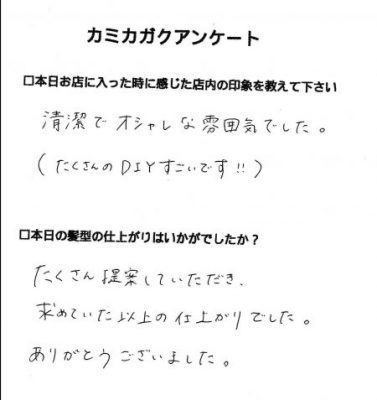 カミカガクアンケート
□本日お店に入った時に感じた店内の印象を教えて下さい
清潔でオシャレな雰囲気でした。
(たくさんのDIYすごいです!!)
□本日の髪型の仕上がりはいかがでしたか?
たくさん提案していただき、
求めていた以上の仕上がりでした。
ありがとうございました。